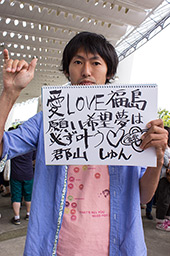 愛LOVE福島
願い希望夢は
必ず叶う♡
郡山 しゅん